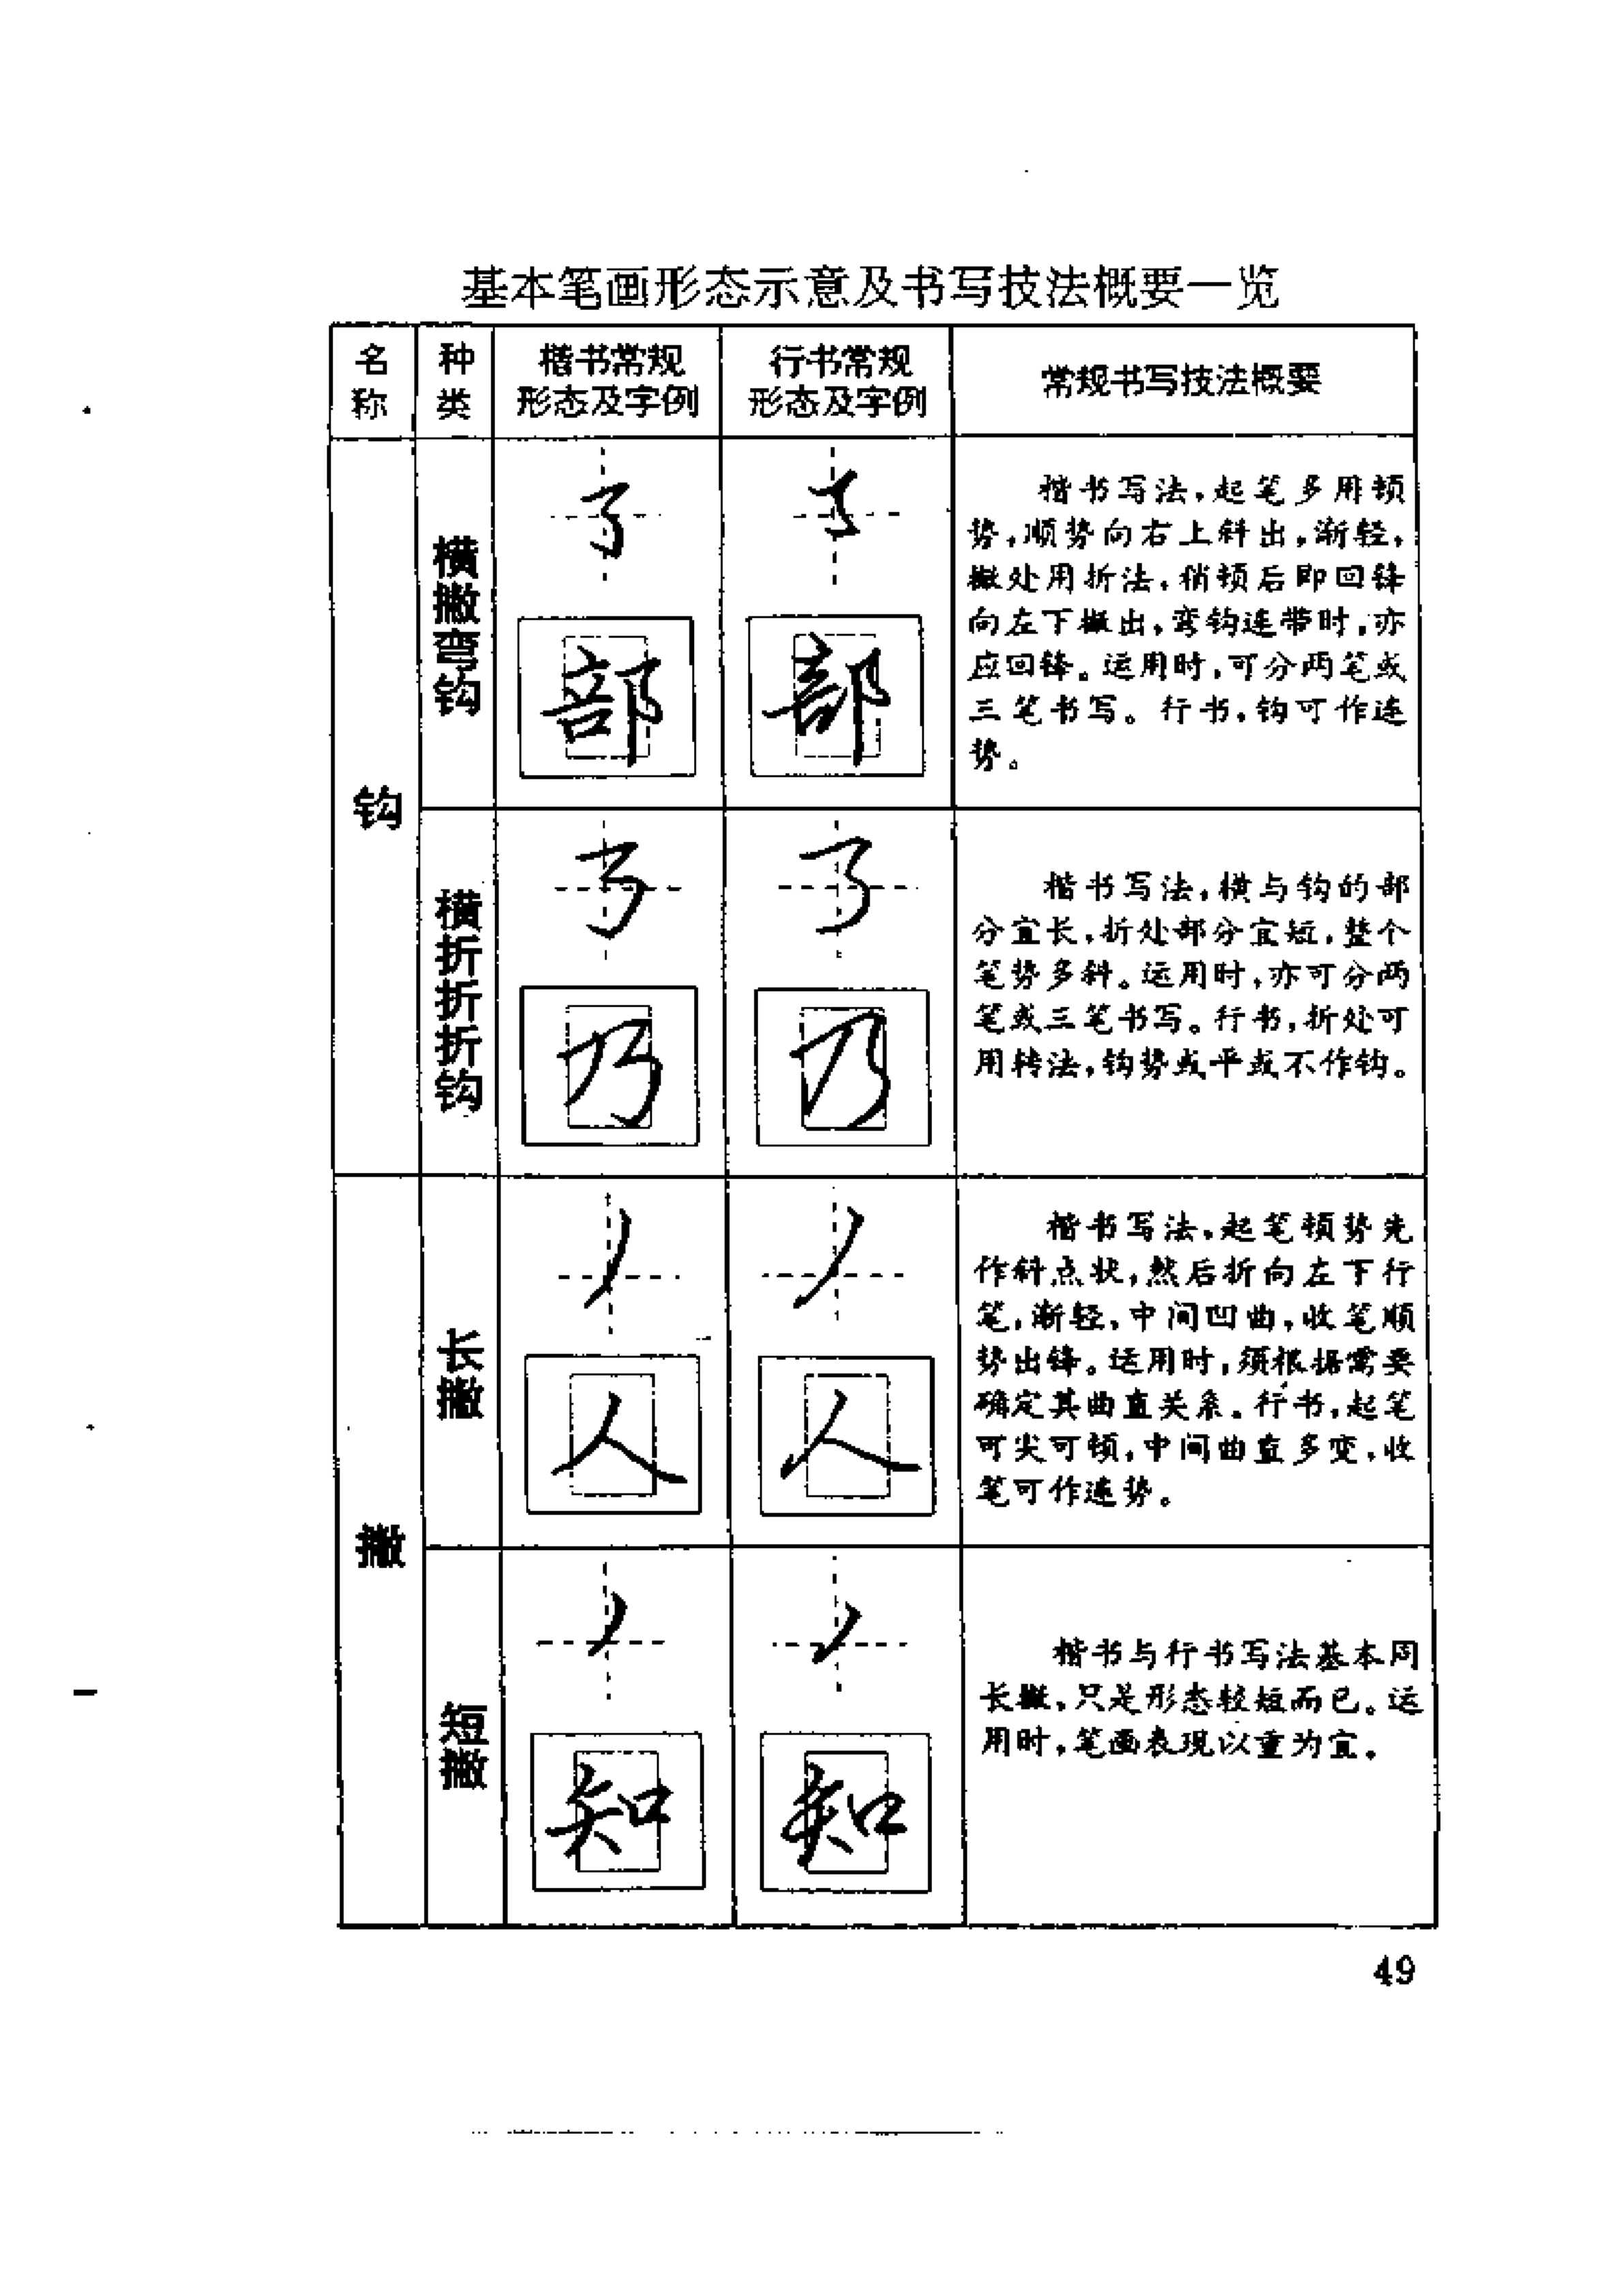 基本笔画形态示意及书写技法概要一览
名称
种类
楷书常规
形态及字例
行书常规
形态及字例
常规书写技法概要
钩
横撇弯钩
部
部
楷书写法,起笔多用顿
势,顺势向右上斜出,渐轻,
撇处用折法,稍顿后即回锋
向左下撇出,弯钩连带时,亦
应回锋。运用时,可分两笔或
三笔书写。行书,钩可作连
势。
横折折折钩
乃
乃
楷书写法,横与钩的部
分宜长,折处部分宜短,整个
笔势多斜。运用时,亦可分两
笔或三笔书写。行书,折处可
用转法,钩势或平或不作钩。
撇
长撇
人
人
楷书写法,起笔顿势先
作斜点状,然后折向左下行
笔,渐轻,中间凹曲,收笔顺
势出锋。运用时,须根据需要
确定其曲直关系。行书,起笔
可尖可顿,中间曲直多变,收
笔可作连势。
短撇
知
知
楷书与行书写法基本同
长撇,只是形态较短而已。运
用时,笔画表现以重为宜。
49